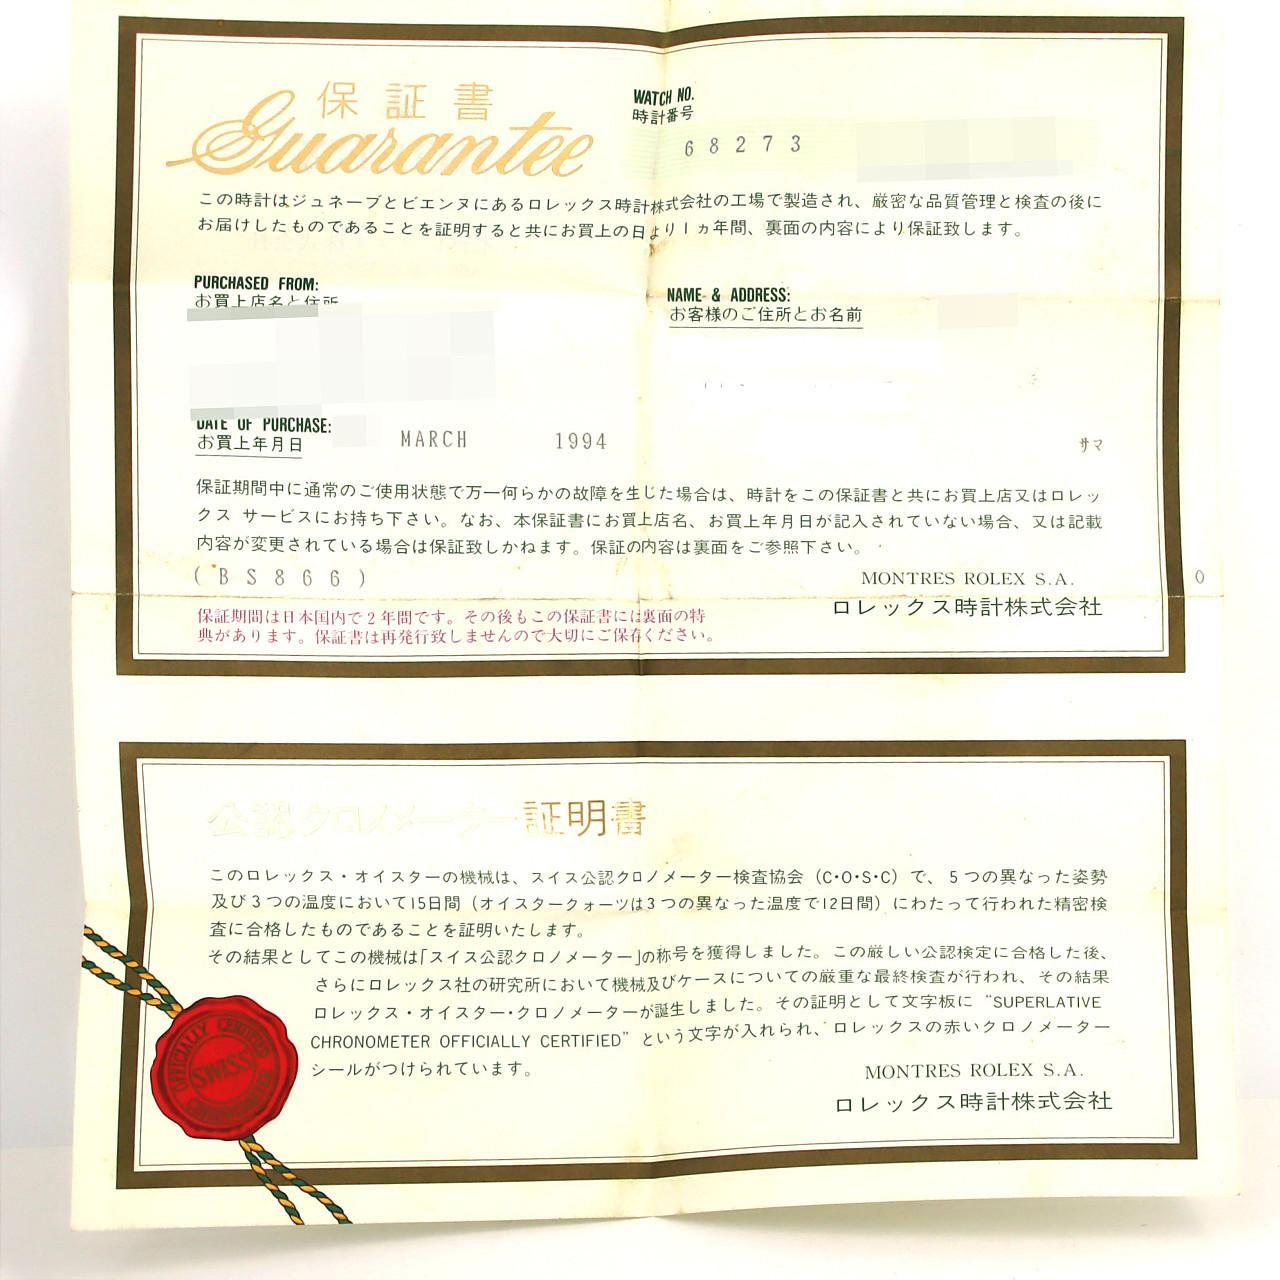 保証書
Guarantee
WATCH NO.
時計番号
68273
この時計はジュネーブとビエンヌにあるロレックス時計株式会社の工場で製造され、厳密な品質管理と検査の後に
お届けしたものであることを証明すると共にお買上の日より1ヵ年間、裏面の内容により保証致します。
PURCHASED FROM:
お買上店名と住所
NAME & ADDRESS:
お客様のご住所とお名前
DATE OF PURCHASE:
お買上年月日
MARCH 1994
サマ
保証期間中に通常のご使用状態で万一何らかの故障を生じた場合は、時計をこの保証書と共にお買上店又はロレッ
クス サービスにお持ち下さい。なお、本保証書にお買上店名、お買上年月日が記入されていない場合、又は記載
内容が変更されている場合は保証致しかねます。保証の内容は裏面をご参照下さい。
(BS866)
MONTRES ROLEX S.A.
0
ロレックス時計株式会社
保証期間は日本国内で2年間です。その後もこの保証書には裏面の特
典があります。保証書は再発行致しませんので大切にご保存ください。
公認クロノメーター証明書
このロレックス・オイスターの機械は、スイス公認クロノメーター検査協会（C・O・S・C）で、5つの異なった姿勢
及び3つの温度において15日間（オイスタークォーツは3つの異なった温度で12日間）にわたって行われた精密検
査に合格したものであることを証明いたします。
その結果としてこの機械は「スイス公認クロノメーター」の称号を獲得しました。この厳しい公認検定に合格した後、
さらにロレックス社の研究所において機械及びケースについての厳重な最終検査が行われ、その結果
ロレックス・オイスター・クロノメーターが誕生しました。その証明として文字板に “SUPERLATIVE
CHRONOMETER OFFICIALLY CERTIFIED” という文字が入れられ、ロレックスの赤いクロノメーター
シールがつけられています。
MONTRES ROLEX S.A.
ロレックス時計株式会社
OFFICIALLY CERTIFIED
SWISS
CHRONOMETER